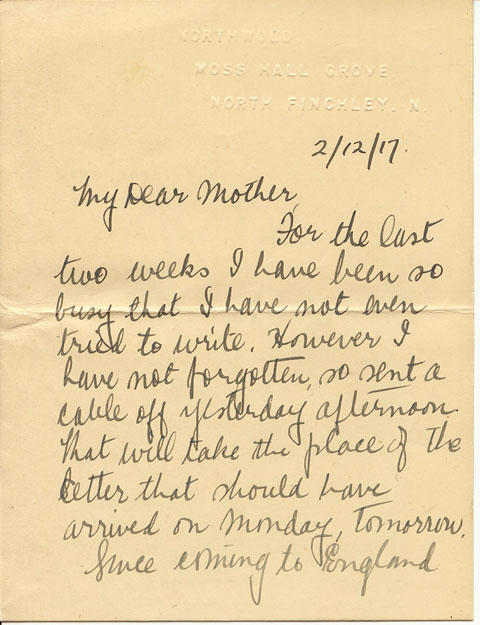 NORTHWOLD,
MOSS HALL GROVE,
NORTH FINCHLEY, N.
2/12/17.
My Dear Mother,
For the last
two weeks I have been so
busy that I have not even
tried to write. However I
have not forgotten, so sent a
cable off yesterday afternoon.
That will take the place of the
letter that should have
arrived on Monday, tomorrow.
Since coming to England